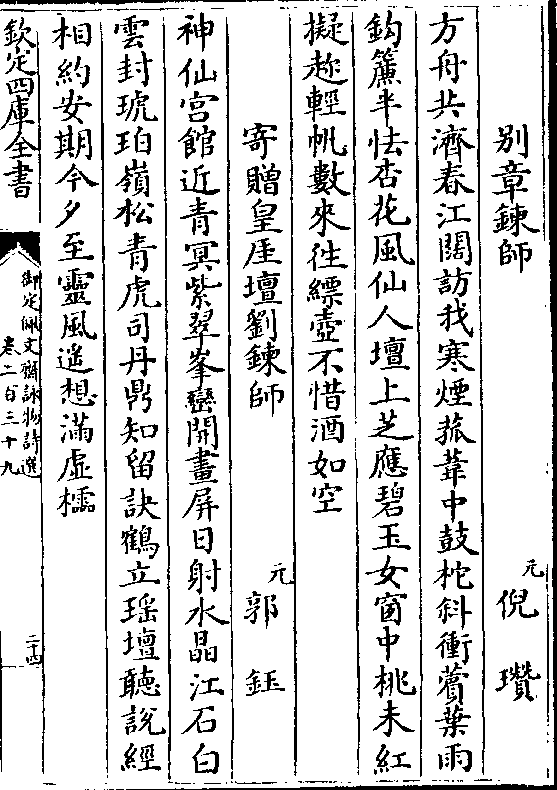 別章鍊師
元 倪瓚
方舟共濟春江闊訪我寒煙菰葦中鼓柁斜衝蒼葉雨
鈎簾半怯杏花風仙人壇上芝應碧玉女窗中桃未紅
擬趂輕帆數來往縹壺不惜酒如空
寄贈皇厓壇劉鍊師
元 郭鈺
神仙宮館近青冥紫翠峯巒開畫屏日射水晶江石白
雲封琥珀嶺松青虎司丹鼎知留訣鶴立瑶壇聽說經
相約安期今夕至靈風遥想滿虛櫺
欽定四庫全書
御定佩文齋詠物詩選
卷二百三十九
二十四